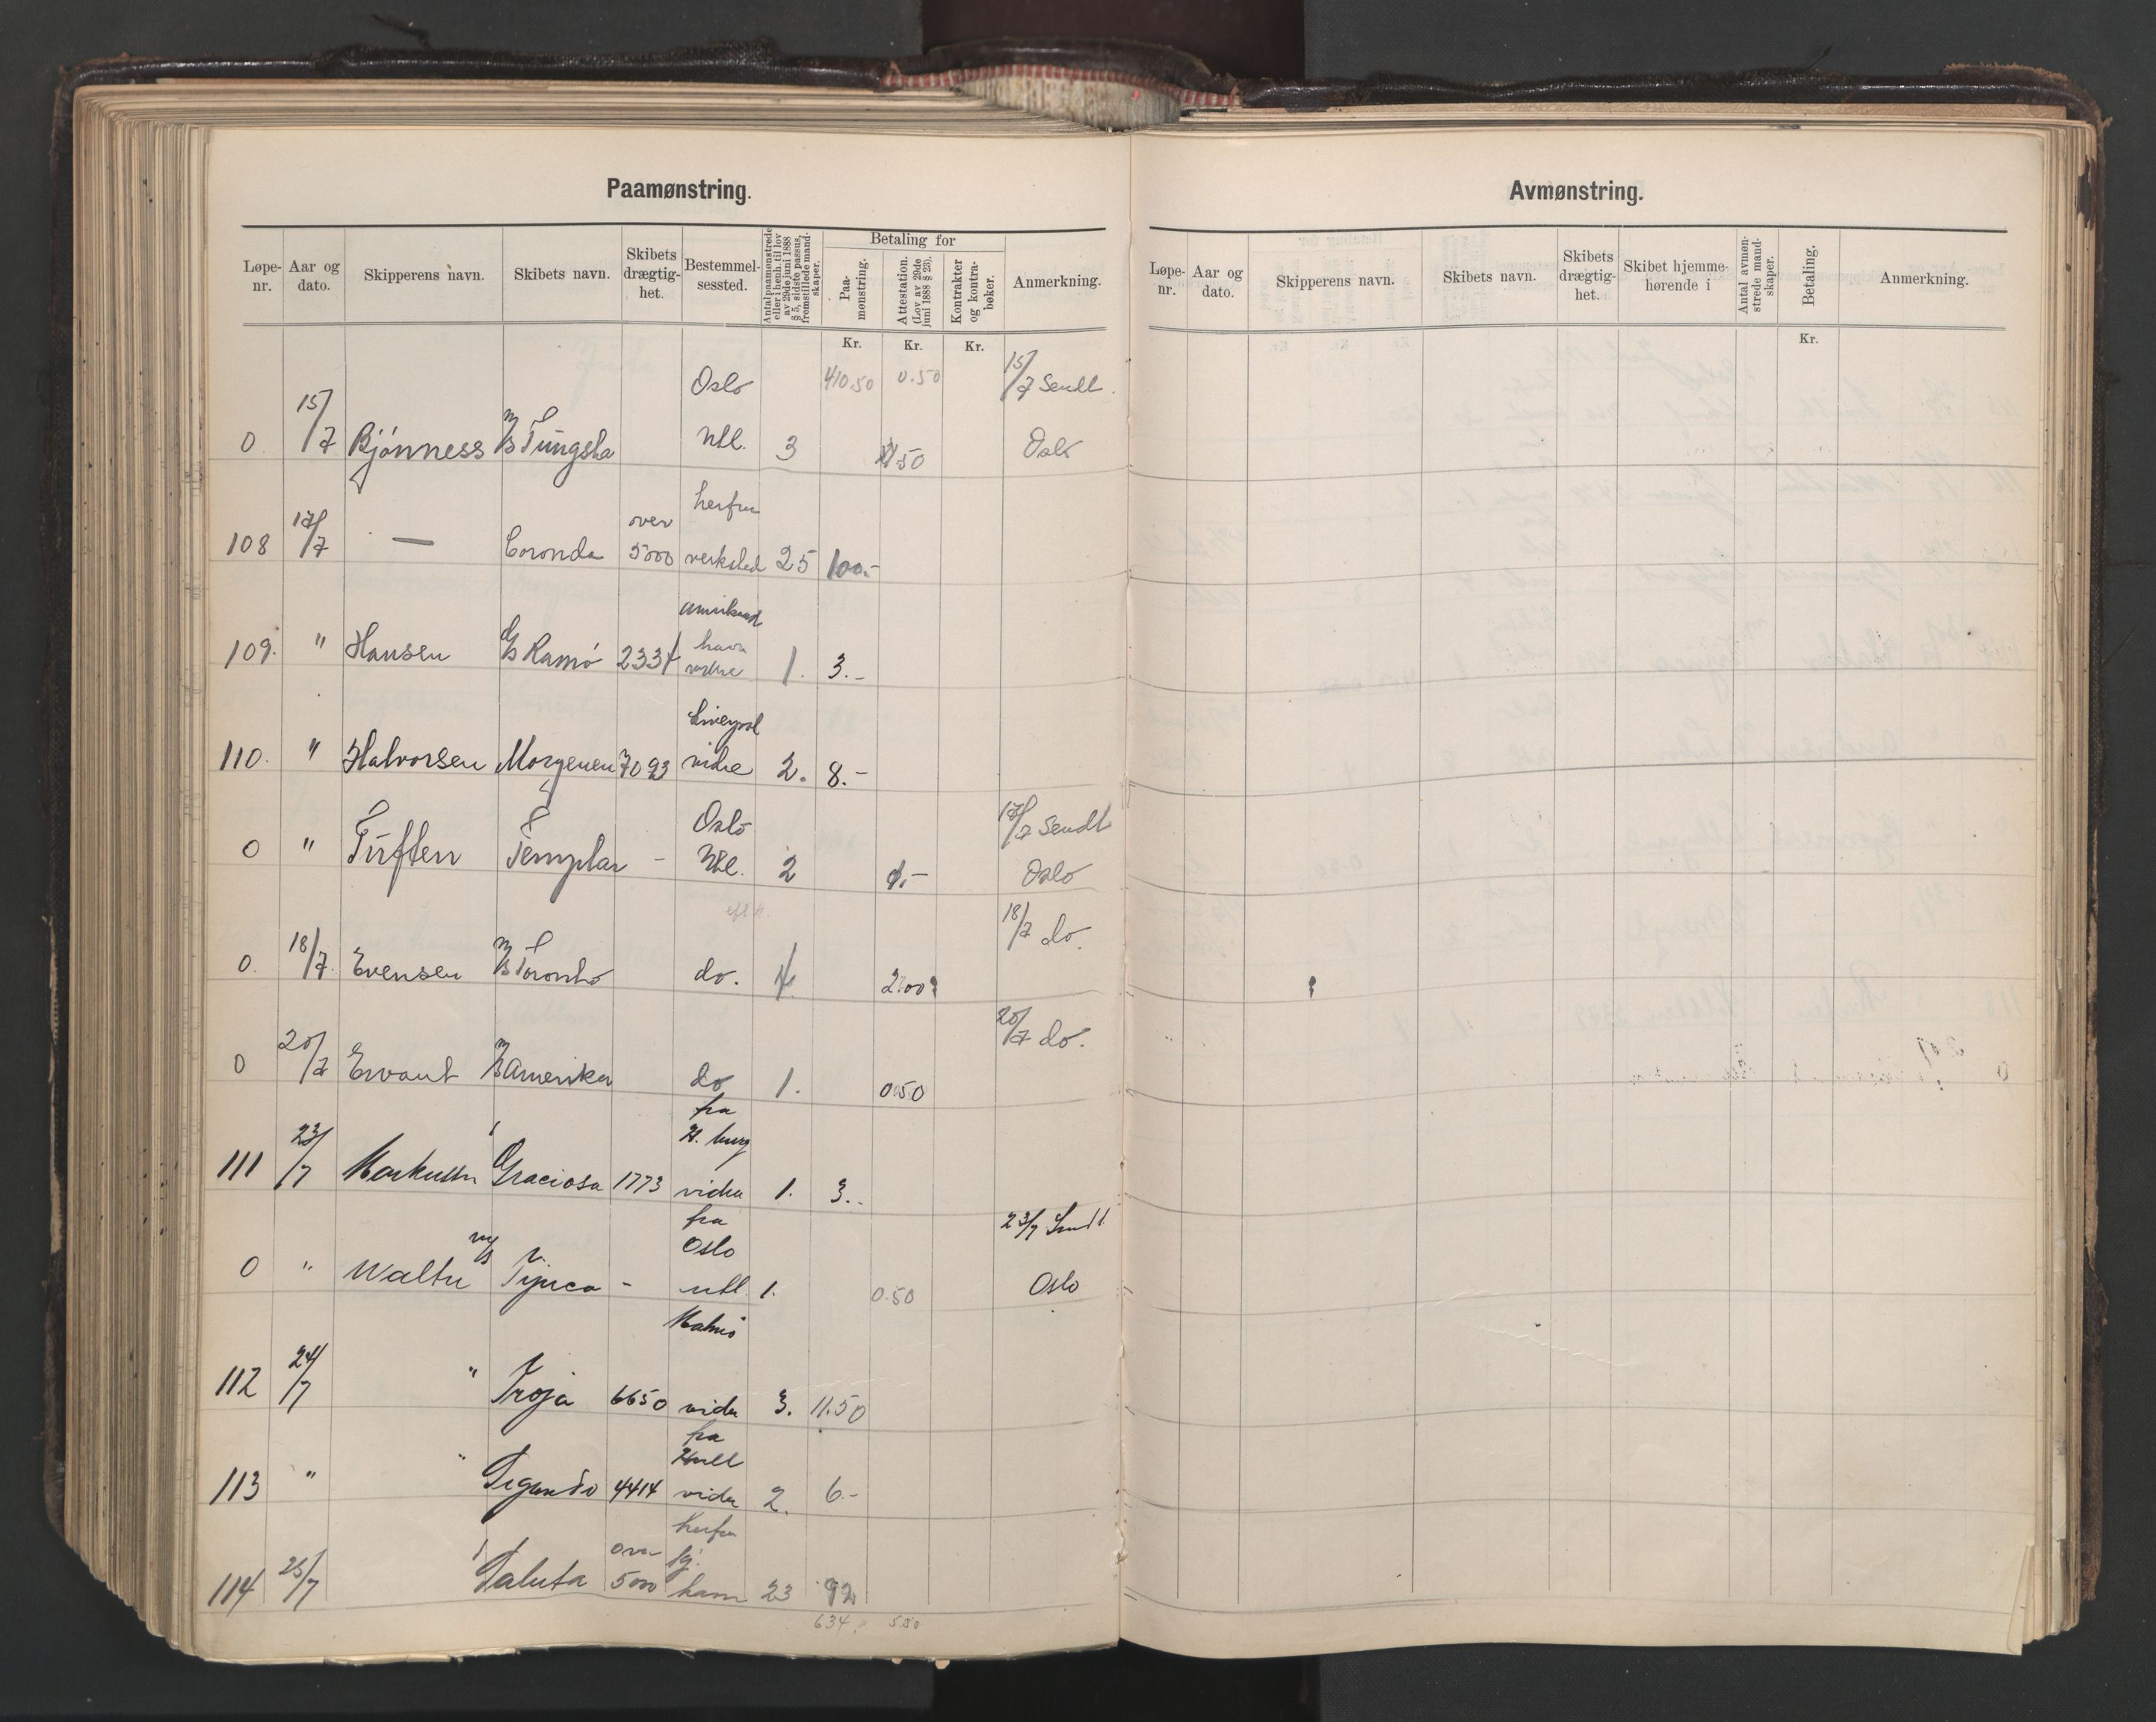 Paamønstring.
Løpe-nr. Aar og dato. Skipperens navn. Skibets navn. Skibets drægtig-het. Bestemmel-sessted. Antal paamønstrede eller i henh. til lov av 29de juni 1888 § 5, sidste passus, fremstillede mand-skaper. Betaling for Paa-mønstring. Attestation. (Lov av 29de juni 1888 § 23). Kontrakter og kontra-bøker. Anmerkning.
Kr. Kr. Kr.
Oslo 410.50 0.50 15/7 Sendt
0 15/7 Bjønness M/S Tungsha utl. 3 1.50 Oslo
herfra
108 17/7 — Coronda over 5000 verksted 25 100.-
109. " Hansen D/S Ramø 2334 havn vidre 1. 3.-
Liverpol
110. " Halvorsen Morgenen 7093 vidre 2. 8.-
Oslo 17/7 Sendt
0 " Tuften Templar - Utl. 2 1.- Oslo
18/7 do.
0. 18/7. Evensen M/S Toronto do. 4. 2.00
20/7 do.
0 20/7 Ervant M/S Amerika do 1. 0.50
fra
H. burg
111 23/7 Markussen Graciosa 1773 vidre 1. 3.-
fra
Oslo 23/7 Sendt
0 " Walter M/S Tijuca - utl. 1. 0.50 Oslo
Malmö
112 24/7 " Troja 6650 vidre 3. 11.50
fra
Hull
113 " " Tigando 4414 vidre 2. 6.-
herfra
114 25/7 Taluta over 5000 havn 23 92
634. 5.50
Avmønstring.
Løpe-nr. Aar og dato. Skipperens navn. Skibets navn. Skibets drægtig-het. Skibet hjemme-hørende i Antal avmøn-strede mand-skaper. Betaling. Anmerkning.
Kr.